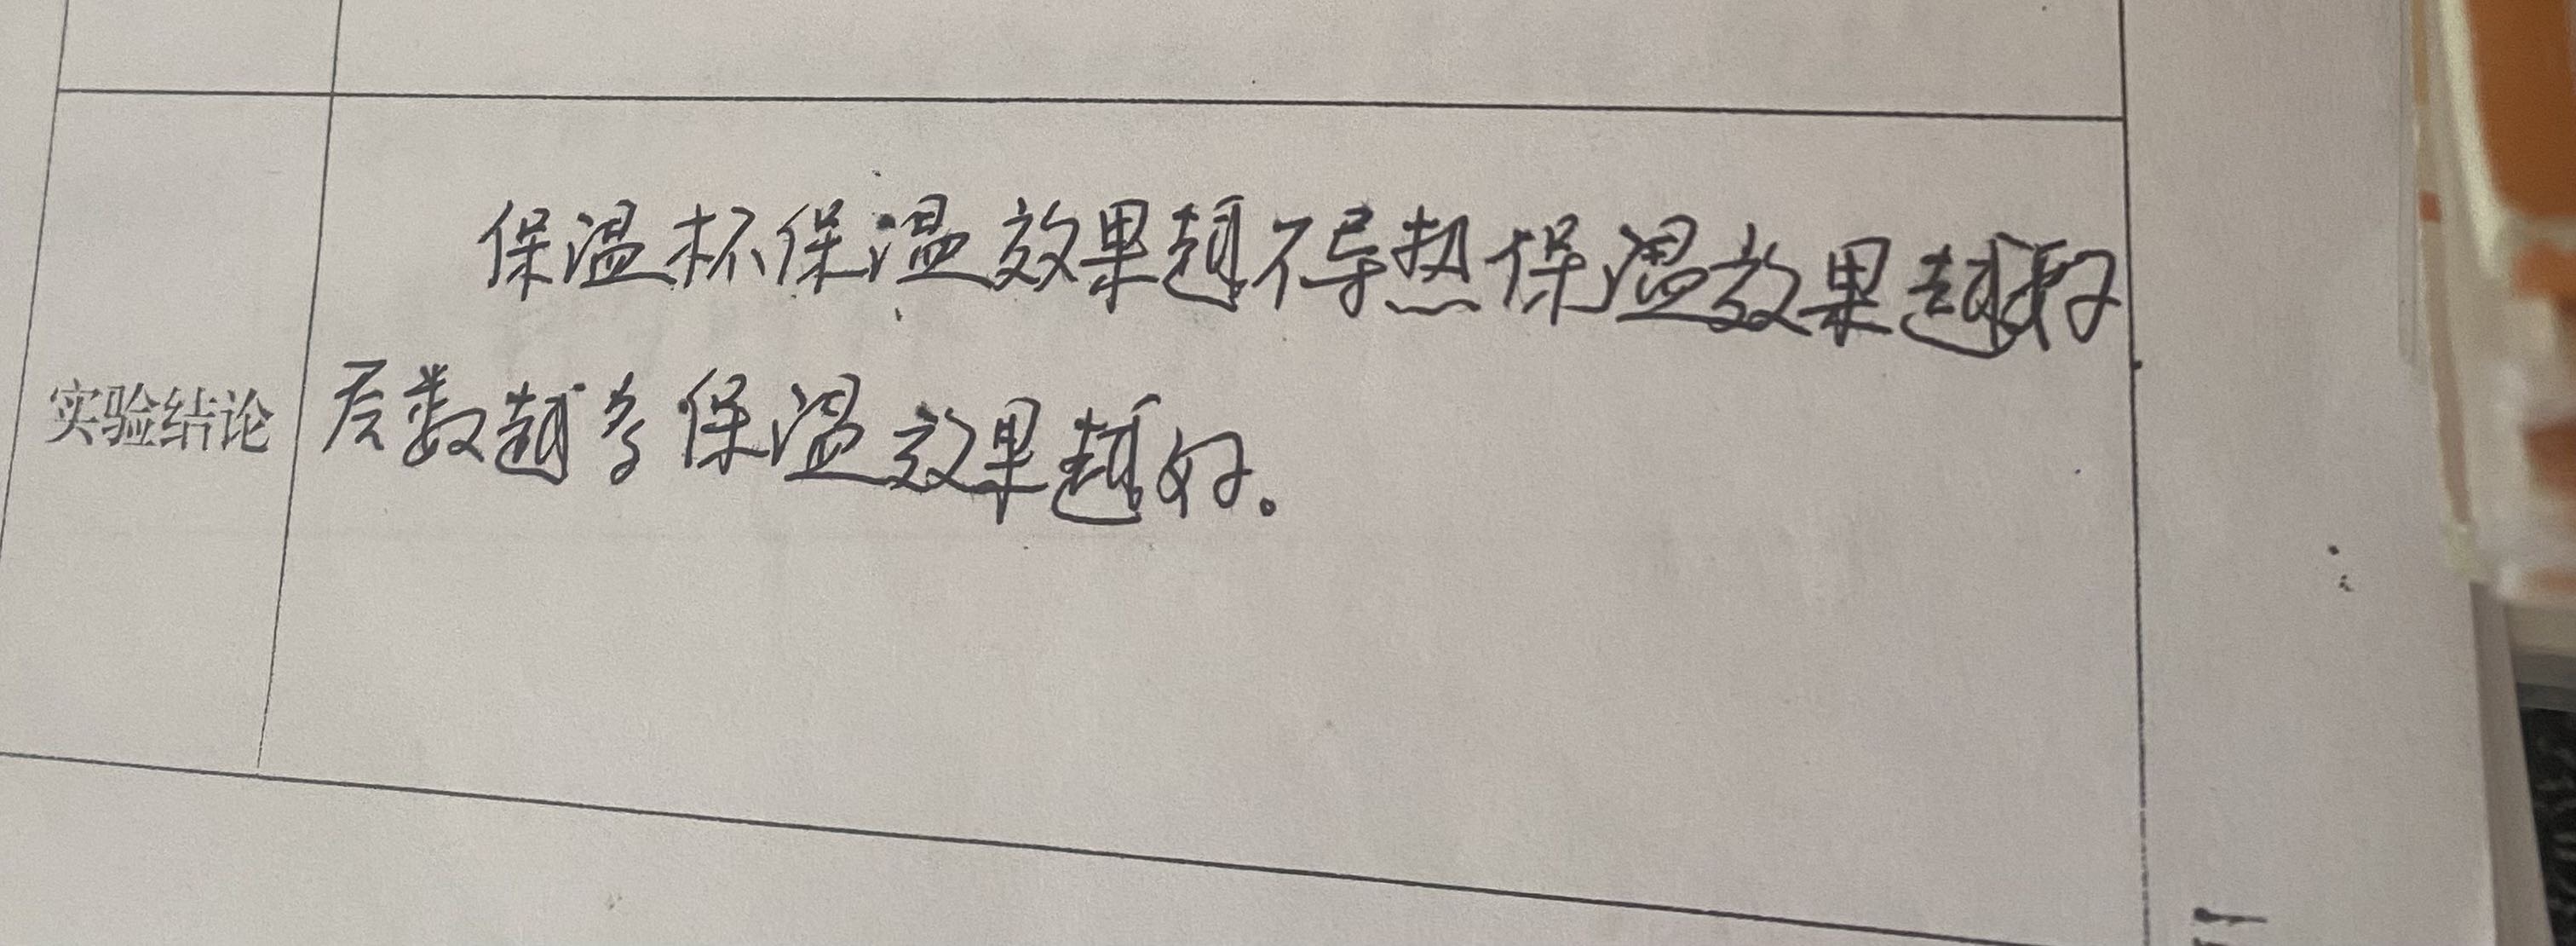 保温杯保温效果越不导热保温效果越好
实验结论
层数越多保温效果越好。